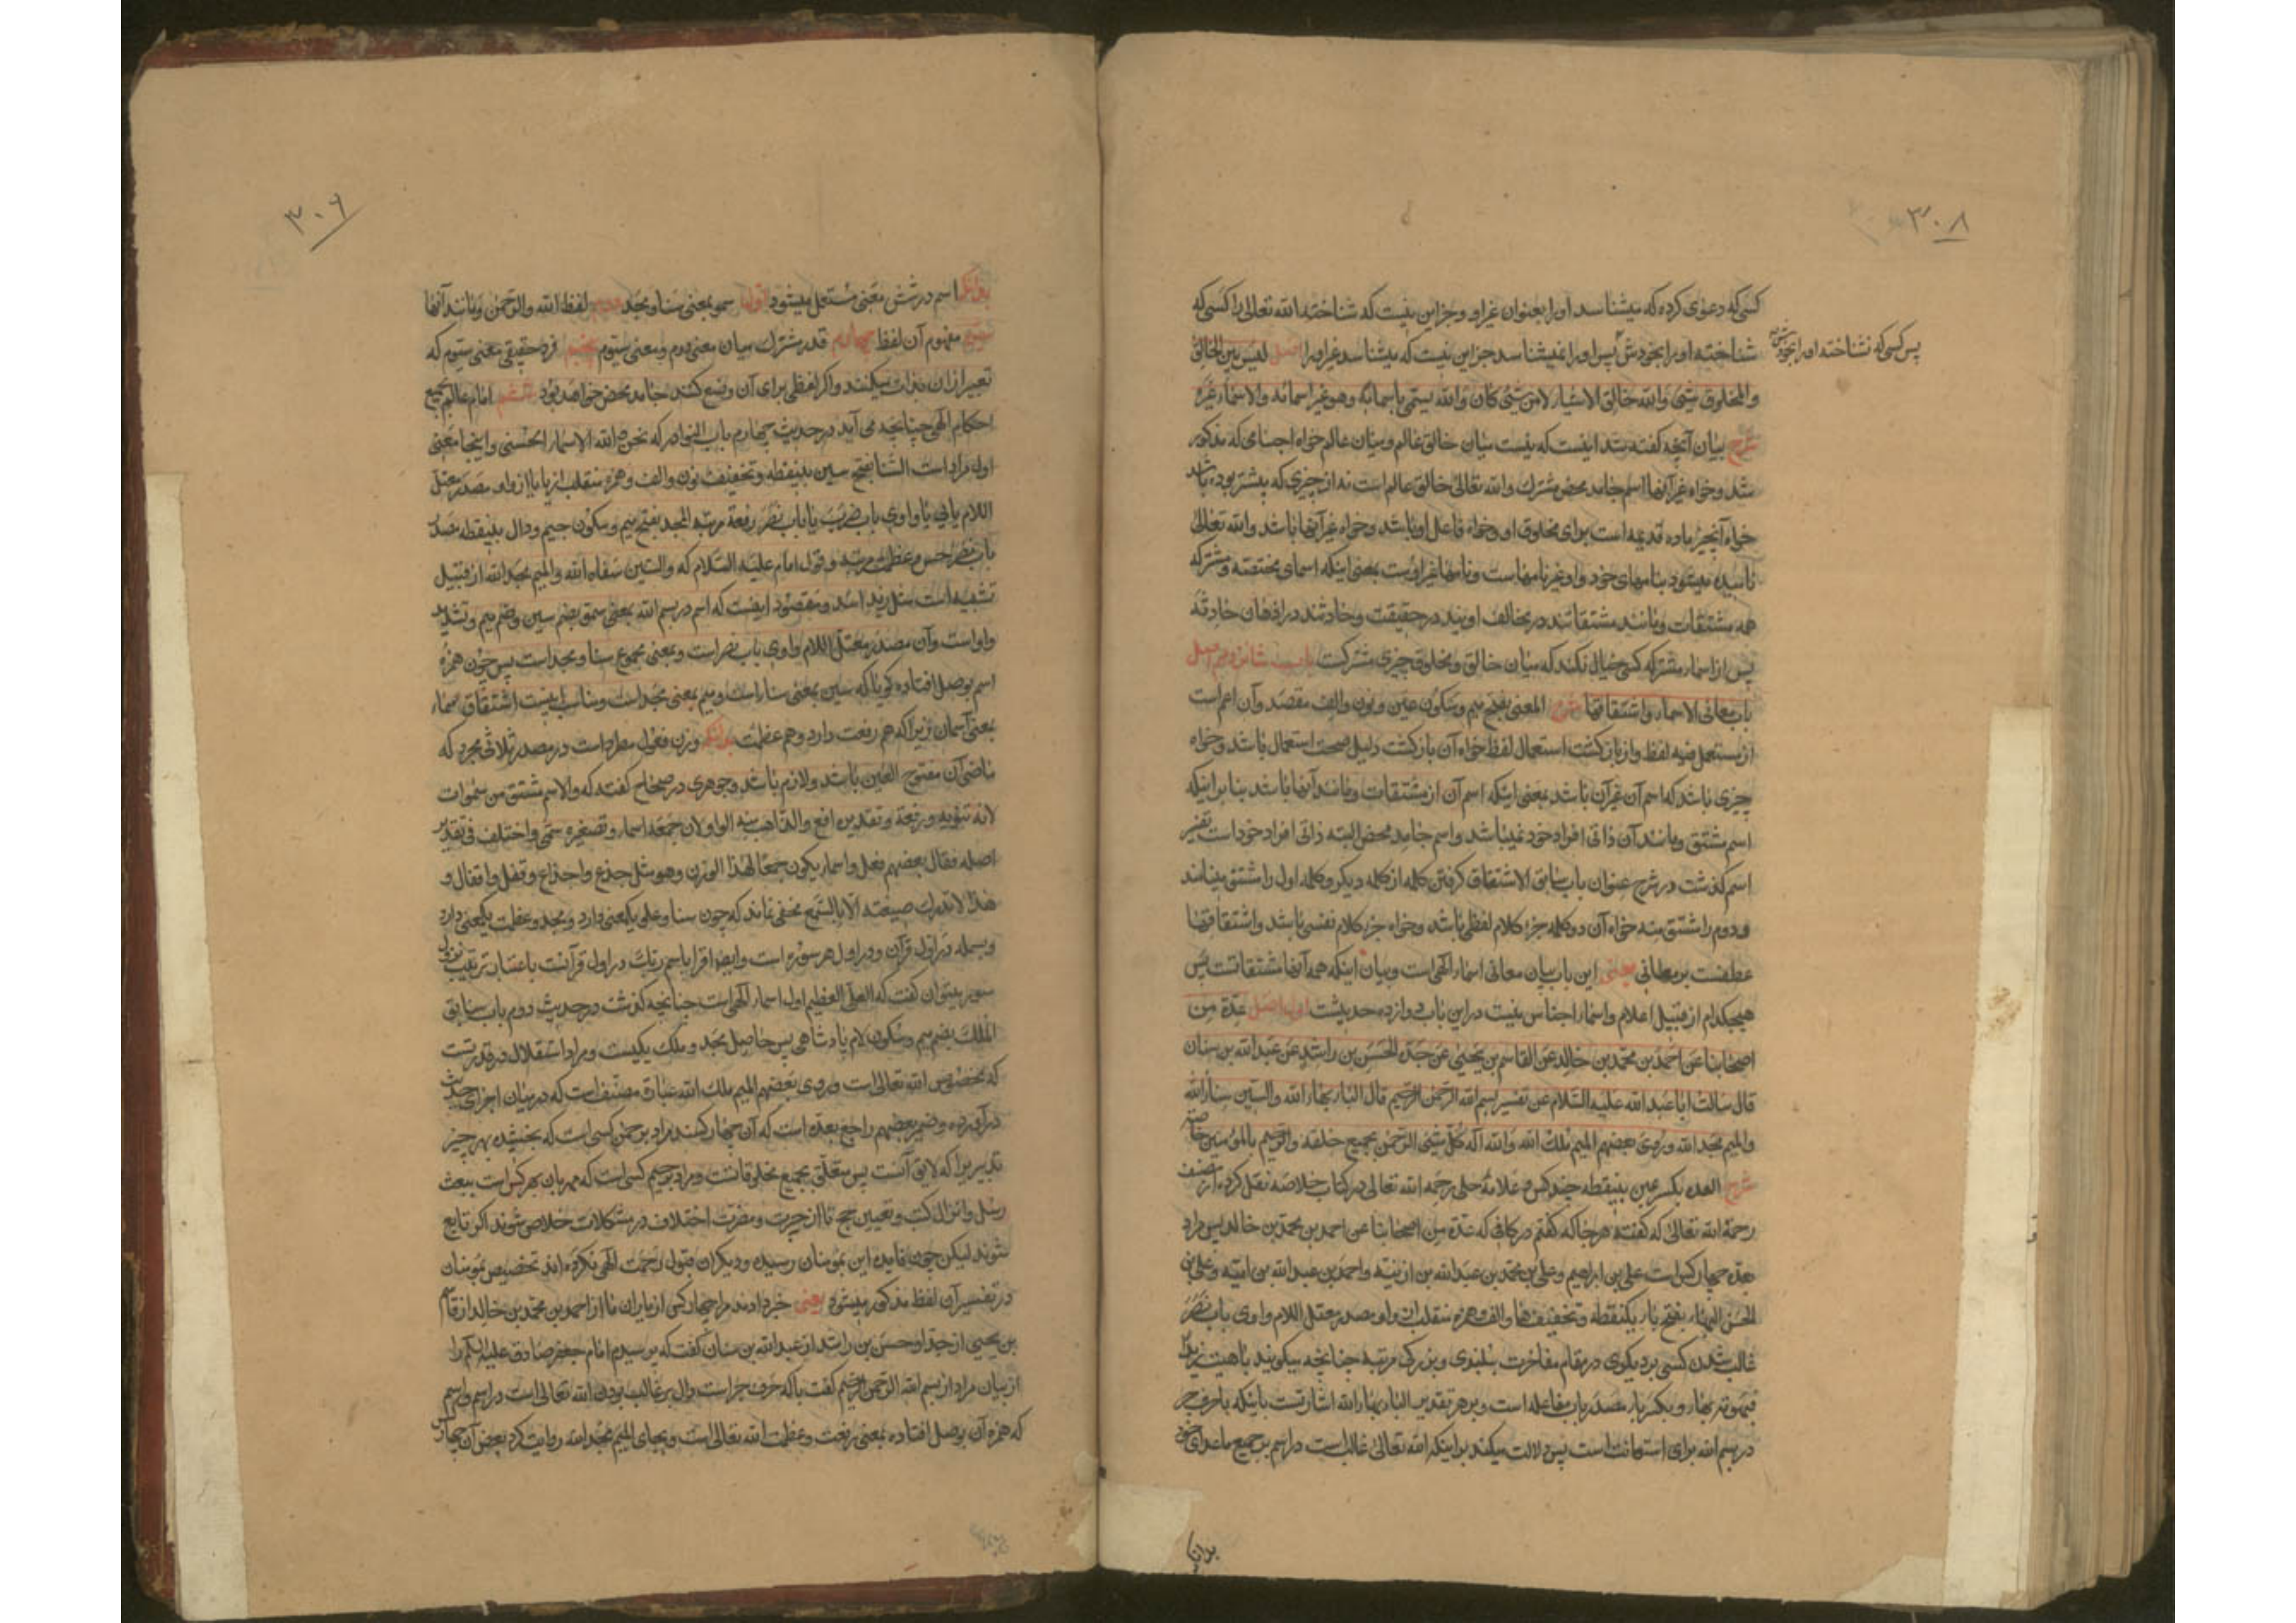 ۳۰۸
کسی که دعوی کرده که میشناسد او را بعنوان غیر او و جز این نیست که شناخته الله تعالی را کسی که
شناخته او را بخودش پس او را نمیشناسد جز این نیست که میشناسد غیر او را اصل لیس بین الخالق
پس کسی که نشناخته او را بخودش
والمخلوق شیئ والله خالق الاشیاء لا من شیئ کان والله یسمی باسمائه وهو غیر اسمائه والاسماء غیره
شرح بیان آنچه گفته شد اینست که نیست میان خالق عالم و میان عالم خواه اجسامی که مذکور
شد و خواه غیر آنها اسم جامد محض مشترک والله تعالی خالق عالم است نه از چیزی که پیشتر بوده باشد
خواه آنچیز ماده قدیمه است برای مخلوق او و خواه فاعل او باشد و خواه غیر آنها باشد والله تعالی
نامیده میشود بنامهای خود و او غیر نامهاست و نامها غیر اوست بمعنی اینکه اسمای مختصه و مشترکه
همه مشتقات و مانند مشتقاتند در مخالف اویند در حقیقت و حادثند در اذهان حادثه
پس از اسماء مشترکه کسی خیال نکند که میان خالق و مخلوق چیزی مشترکست باب شانزدهم اصل
باب معانی الاسماء واشتقاقها شرح المعنی بفتح میم و سکون عین و نون والف مقصد وآن اعم است
از مستعمل فیه لفظ و از بازگشت استعمال لفظ خواه آن بازگشت دلیل صحت استعمال باشد و خواه
چیزی باشد که اسم آن غیر آن باشد بمعنی اینکه اسم آن از مشتقات و مانند آنها باشد بنا بر اینکه
اسم مشتق و مانند آن ذاتی افراد خود نمیباشد و اسم جامد محض البته ذاتی افراد خود است تفسیر
اسم گذشت در شرح عنوان باب سابق الاشتقاق گرفتن کلمه از کلمه دیگر و کلمه اول را مشتق مینامند
و دوم را مشتق منه خواه آن دو کلمه جزء کلام لفظی باشد و خواه جزء کلام نفسی باشد واشتقاقها
عطفست بر معانی یعنی این باب بیان معانی اسماء الهی است و بیان اینکه همه آنها مشتقاتست پس
هیچکدام از قبیل اعلام و اسماء اجناس نیست در این باب دوازده حدیثست اول اصل عدة من
اصحابنا عن احمد بن محمد بن خالد عن القاسم بن یحیی عن جده الحسن بن راشد عن عبد الله بن سنان
قال سالت ابا عبد الله علیه السلام عن تفسیر بسم الله الرحمن الرحیم قال الباء بهاء الله والسین سناء الله
والمیم مجد الله وروی بعضهم المیم ملک الله والله اله کل شیئ الرحمن بجمیع خلقه والرحیم بالمؤمنین خاصة
شرح العدة بکسر عین بینقطه چند کس و علامه حلی رحمه الله تعالی در کتاب خلاصه نقل کرده از مصنف
رحمة الله تعالی که گفته هر جا که گفتم در کافی که عدة من اصحابنا عن احمد بن محمد بن خالد پس مراد
بعده چهار کس است علی بن ابراهیم و علی بن محمد بن عبد الله بن اذینه و احمد بن عبد الله بن امیه و علی بن
الحسن البهاء بفتح باء یکنقطه و تخفیف ها والف و همزه منقلب از واو مصدر معتل اللام واوی باب نصر
غالب شدن کسی بر دیگری در مقام مفاخرت ببلندی و بزرگی مرتبه چنانچه میگویند باهیت زیدا
فبهوته بهاء و بکسر باء مصدر باب مفاعله است و بر هر تقدیر الباء بهاء الله اشارتست باینکه با حرف جر
در بسم الله برای استعانت است پس دلالت میکند بر اینکه الله تعالی غالب است در اسم بر جمیع ماعدای خود
بدانکه
۳۰۹
بدانکه اسم در شش معنی مستعمل میشود اول سمو بمعنی سنا و مجد دوم لفظ الله والرحمن و مانند آنها
سیوم مفهوم آن لفظ چهارم قدر مشترک میان معنی دوم و معنی سیوم پنجم فرد حقیقی معنی سیوم که
تعبیر از ان بذات میکنند و اگر لفظی برای آن وضع کنند جامد محض خواهد بود ششم امام عالم بجمیع
احکام الهی چنانچه می آید در حدیث چهارم باب النوادر که نحن والله الاسماء الحسنی و اینجا معنی
اول مراد است السنا بفتح سین بینقطه و تخفیف نون والف و همزه منقلب از یا یا از واو مصدر معتل
اللام یائی یا واوی باب ضرب یا باب نصر رفعة مرتبه المجد بفتح میم و سکون جیم و دال بینقطه مصدر
باب نصر حسن و عظمت مرتبه و قول امام علیه السلام که والسین سناء الله والمیم مجد الله از قبیل
تشبیه است مثل زید اسد و مقصود اینست که اسم در بسم الله بمعنی سمو بضم سین و ضم میم و تشدید
واو است و آن مصدر معتل اللام واوی باب نصر است و بمعنی مجموع سنا و مجد است پس چون همزه
اسم بوصل افتاده گویا که سین بمعنی سناء است و میم بمعنی مجد است و مناسب اینست اشتقاق سماء
بمعنی آسمان زیرا که هم رفعت دارد و هم عظمت بدانکه وزن فعول مطرد است در مصدر ثلاثی مجرد که
ماضی آن مفتوح العین باشد و لازم باشد و جوهری در صحاح گفته که والاسم مشتق من سموات
لانه تنویه ورفعة وتقدیره افع والذاهب منه الواو لان جمعه اسماء وتصغیره سمی واختلف فی تقدیر
اصله فقال بعضهم فعل واسماء یکون جمعا لهذا الوزن وهو مثل جذع واجذاع وقفل واقفال و
هذا لا تدرک صیغته الا بالسمع مخفی نماند که چون سنا و علو یکمعنی دارد و مجد و عظمت یکمعنی دارد
و بسمله در اول قرآن و در اول هر سوره است و ایضا اقرا باسم ربک در اول قرآنست باعتبار ترتیب نزول
سور میتوان گفت که العلی العظیم اول اسماء الهی است چنانچه گذشت در حدیث دوم باب سابق
الملک بضم میم و سکون لام پادشاهی پس حاصل مجد و ملک یکیست و مراد استقلال در قدرتست
که مخصوص الله تعالی است وروی بعضهم المیم ملک الله عبارة مصنف است که در میان اجزای حدیث
در آورده و ضمیر بعضهم راجع بعده است که آن چهار کسند مراد برحمن کسی است که بخشیده بهر چیز
تدبیر یرا که لایق آنست پس متعلق بجمیع مخلوقاتست و مراد برحیم کسی است که مهربان بهر کس است ببعث
رسل و انزال کتب و تعیین حجج تا از حیرت و مضرت اختلاف در مشکلات خلاص شوند اگر تابع
شوند لیکن چون فایده این بمؤمنان رسیده و دیگران قبول رحمت الهی نکرده اند تخصیص بمؤمنان
در تفسیر آن لفظ مذکور میشود یعنی خبر دادند مرا چهار کس از یاران ما از احمد بن محمد بن خالد از قاسم
بن یحیی از جد او حسن بن راشد از عبد الله بن سنان گفت که پرسیدم امام جعفر صادق علیه السلام را
از بیان مراد از بسم الله الرحمن الرحیم گفت با که حرف جر است دال بر غالب بودن الله تعالی است در اسم و اسم
که همزه آن بوصل افتاده بمعنی رفعت و عظمت الله تعالی است و بجای المیم مجد الله روایت کرد بعض آن چهار کس